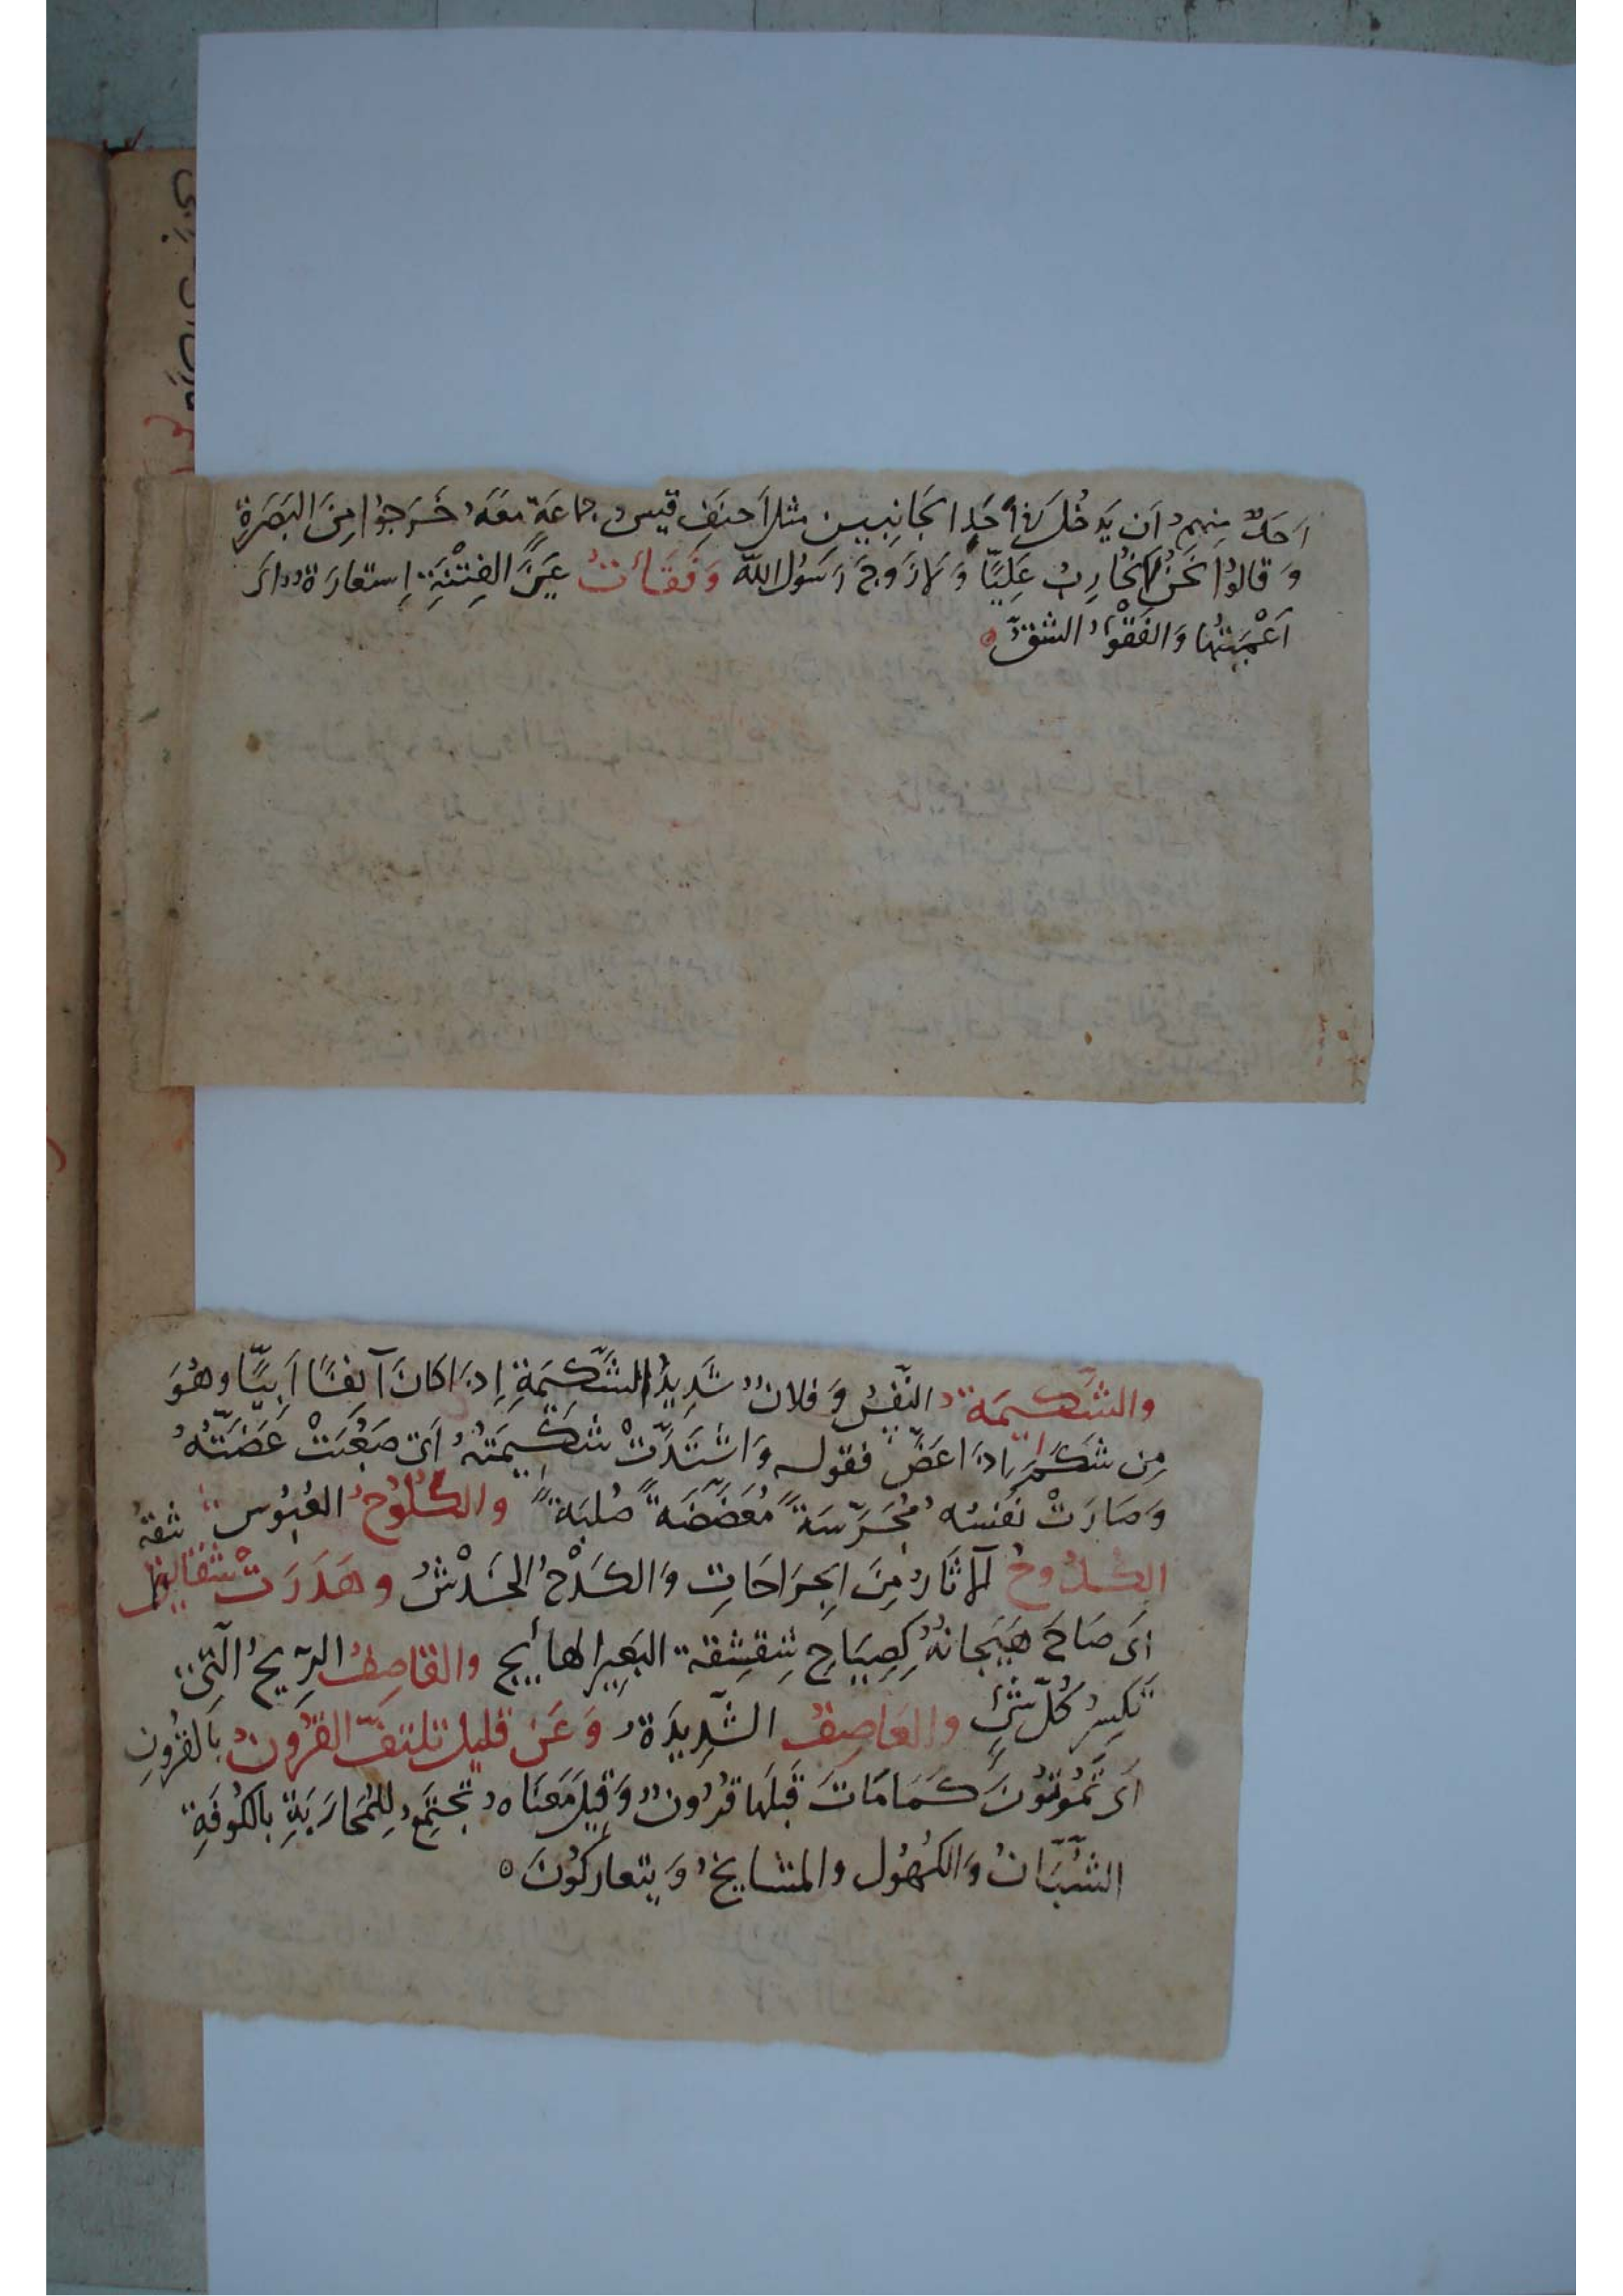 اَحَدٌ مِنهم اَن يَدخُلَ فى اَحَدِ الجَانِبَيين مثل اَحنَفِ قيس و جماعَةٍ مَعَهُ خَرَجوُا مِنَ البَصَرَةِ
وَ قالوُا نَحنُ لَا نُحَارِبُ عَلِيًّا وَ لَا زَوجَ رَسُول اللّه وَفَقَأتُ عَينَ الفِتْنَةِ اِستعارَةٌ اَى
اَعْمَيتُهَا وَالفَقْوُ الشقّ
والشَّكيمَة النَّفسُ وَ فلانٌ شَديدُ الشَّكِيمَةِ اِذَا كانَ آنِفًا اَبيًّا وهُوَ
مِن شَكَمَ اذا عَضَّ فقوله وَاشتَدَّتْ شَكيمَتُهُ اَى صَعُبَتْ عَضَّتُهُ
وَصَارَتْ نَفسُه مُجَرَّسَةً مُعَضَّضَةً صُلبَةً والكُلُوحُ العُبُوس
الكُدُوحُ آلاثَارُ مِنَ الجِرَاحَاتِ وَالكَدْحُ الخَدْشُ وهَدَرَتْ شقَاشِقُ
اَى صَاحَ هَيَجانهُ كَصِيَاحِ شِقشِقة البَعِير الهايج والقاصِفُ الرِّيحُ الَّتى
تَكسِرُ كُلَّ شَئٍ والعَاصِفُ الشَّدِيدَةُ وَعَن قليل تلتَفّ القرُونُ بالقُرُونِ
اَى تَمُوتُونَ كَمَا مَاتَ قَبلَها قرُونٌ وَقِيلَ مَعنَاه تَجتَمِعُ لِلمُحَارَبَةِ بالكُوفَةِ
الشُّبَّانُ وَالكُهُول والمشايخُ وَيتعارَكُونَ